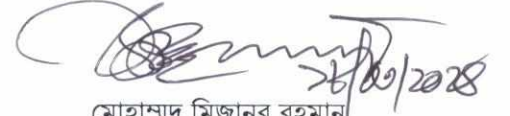 ২৮/০৩/২০২৪
মোহাম্মাদ মিজানুর রহমান